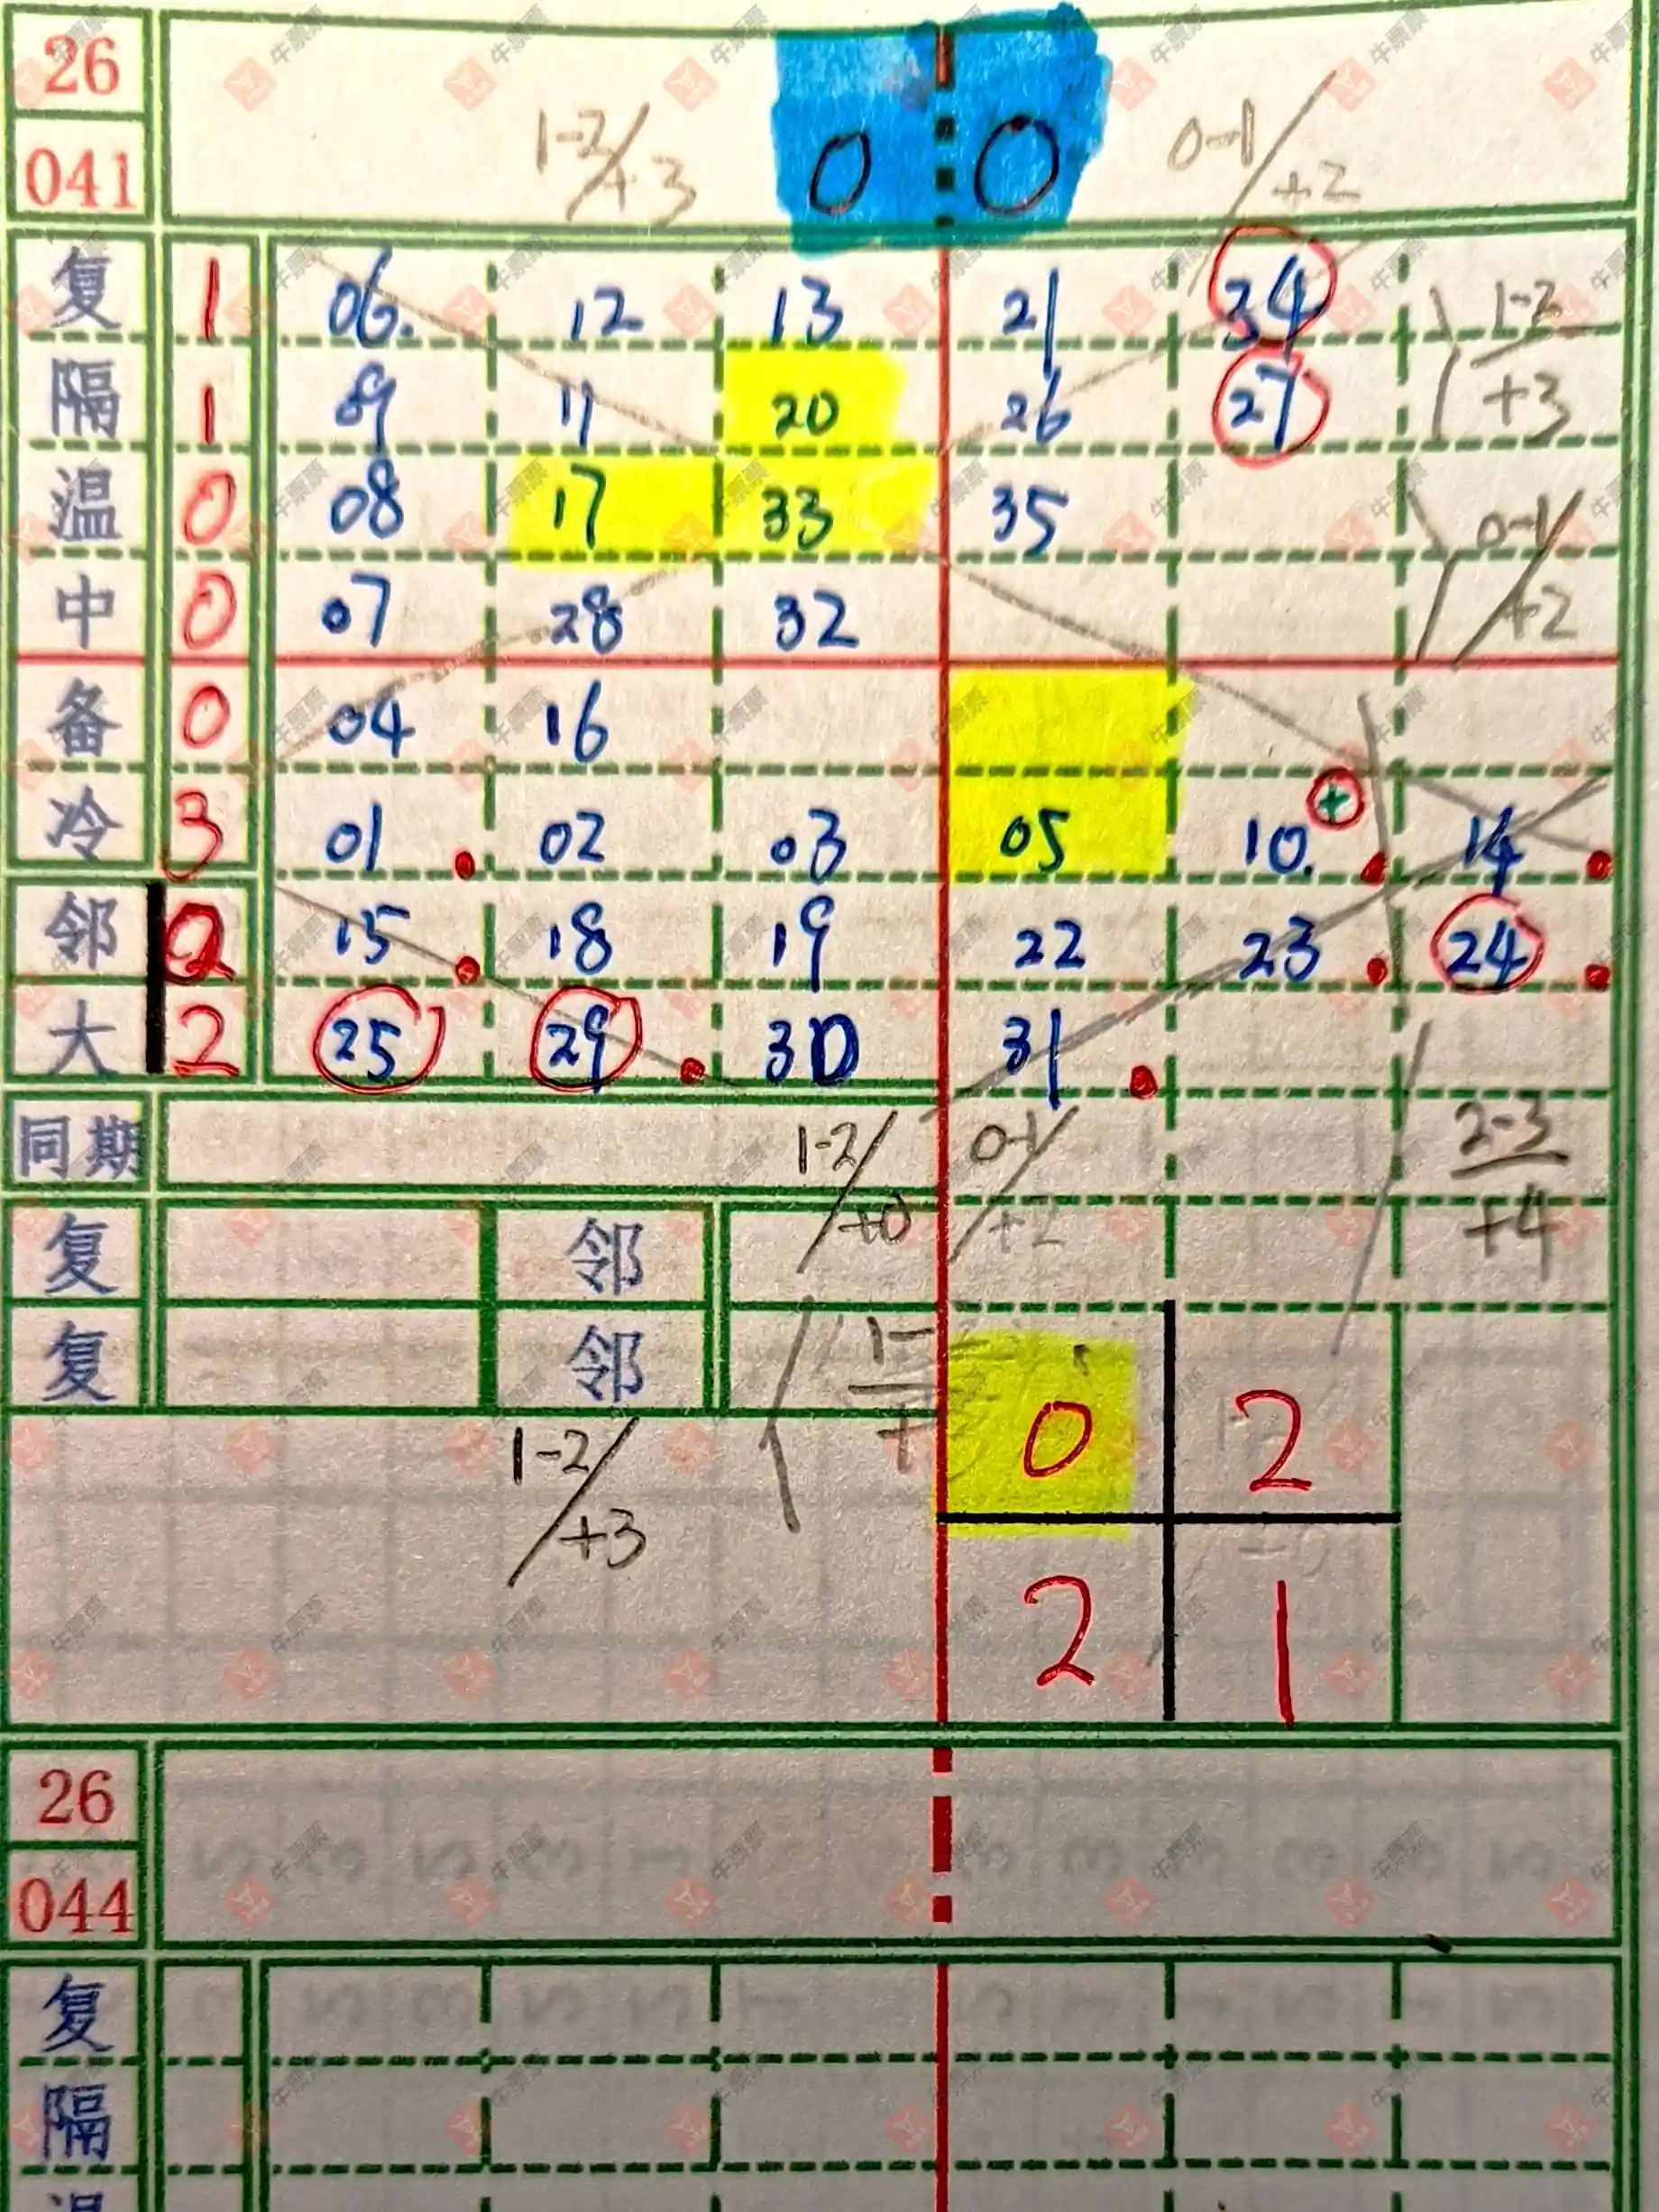 26
041 1-2/+3 0 0 0-1/+2
复 1 06. 12 13 21 34 1-2/+3
隔 1 09 11 20 26 27
温 0 08 17 33 35 0-1/+2
中 0 07 28 32
备 0 04 16
冷 3 01 02 03 05 10. + 14
邻 2 15 18 19 22 23 24
大 2 25 29 30 31
同期 1-2/+0 0-1/+2 2-3/+4
复 邻
复 邻
1-2/+3 0 2
2 1
26
044
复
隔
温
牛票票